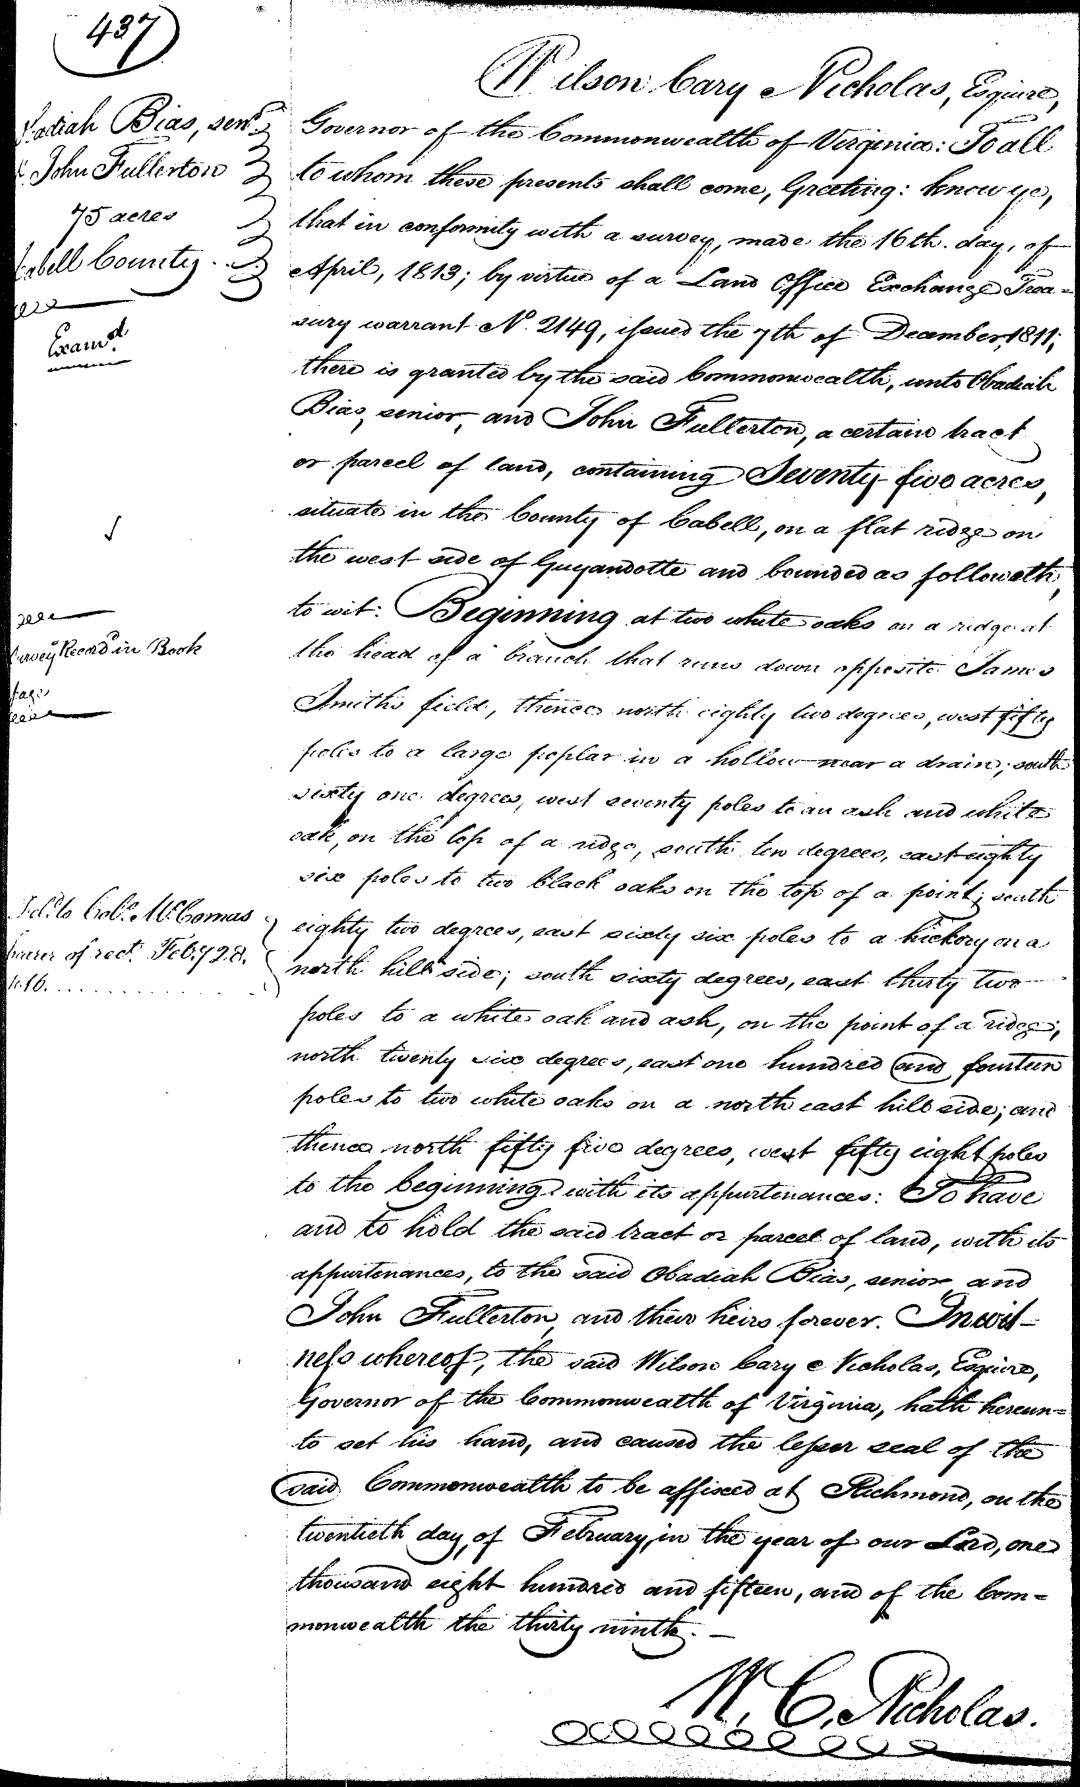 437
Obadiah Bias, senr.
& John Fullerton
75 acres
Cabell County
Examd.
Survey Recordd in Book
page
Deld. to Colo. McComas
bearer of rect. Feby 28.
1816.
Wilson Cary Nicholas, Esquire,
Governor of the Commonwealth of Virginia: To all
to whom these presents shall come, Greeting: know ye,
that in conformity with a survey, made the 16th. day, of
April, 1813; by virtue of a Land Office Exchange Trea=
sury warrant No. 2149, issued the 7th of December, 1811;
there is granted by the said Commonwealth, unto Obadiah
Bias, senior, and John Fullerton, a certain tract
or parcel of land, containing Seventy five acres,
situate in the County of Cabell, on a flat ridge on
the west side of Guyandotte and bounded as followeth,
to wit: Beginning at two white oaks on a ridge at
the head of a branch that runs down opposite James
Smiths field, thence north eighty two degrees, west fifty
poles to a large poplar in a hollow near a drain; south
sixty one degrees, west seventy poles to an ash and white
oak, on the top of a ridge, south ten degrees, east eighty
six poles to two black oaks on the top of a point; south
eighty two degrees, east sixty six poles to a hickory on a
north hill side; south sixty degrees, east thirty two
poles to a white oak and ash, on the point of a ridge;
north twenty six degrees, east one hundred and fourteen
poles to two white oaks on a north east hill side; and
thence north fifty five degrees, west fifty eight poles
to the beginning with its appurtenances: To have
and to hold the said tract or parcel of land, with its
appurtenances, to the said Obadiah Bias, senior, and
John Fullerton, and their heirs forever. In wit-
ness whereof, the said Wilson Cary Nicholas, Esquire,
Governor of the Commonwealth of Virginia, hath hereun=
to set his hand, and caused the lesser seal of the
said Commonwealth to be affixed at Richmond, on the
twentieth day, of February, in the year of our Lord, one
thousand eight hundred and fifteen, and of the Com=
monwealth the thirty ninth.
W. C. Nicholas.